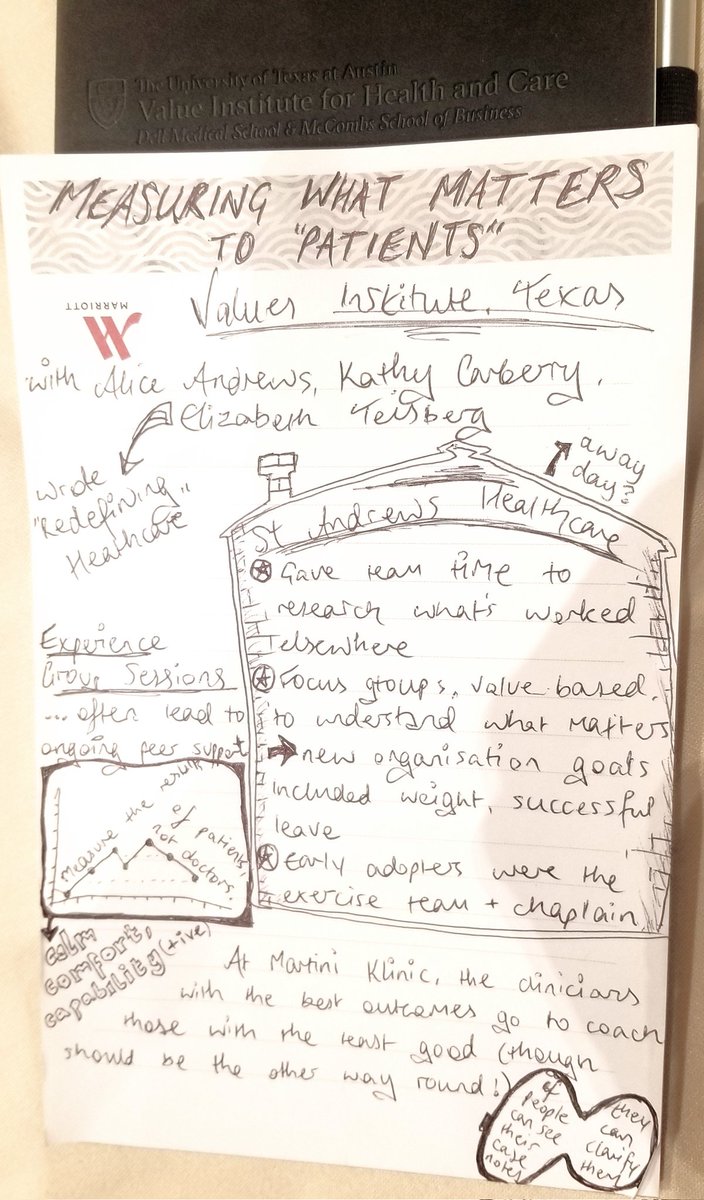 The University of Texas at Austin
Value Institute for Health and Care
Dell Medical School & McCombs School of Business
MEASURING WHAT MATTERS
TO "PATIENTS"
MARRIOTT
Values Institute, Texas
with Alice Andrews, Kathy Carberry,
Elizabeth Teisberg
wrote
"Redefining"
Heathcare
away
day?
St Andrews Healthcare
Gave team time to
research what's worked
elsewhere
Focus groups, value based,
to understand what matters
new organisation goals
included weight, successful
leave
Early adopters were the
exercise team + chaplain
Experience
Group Sessions
... often lead to
ongoing peer support
Measure the results
of patients,
not doctors.
calm
comfort,
capability (+ive)
At Martini Klinic, the clinicians
with the best outcomes go to coach
those with the least good (though
should be the other way round!)
if
people
can see
their
case
notes
they
can
clarify
them